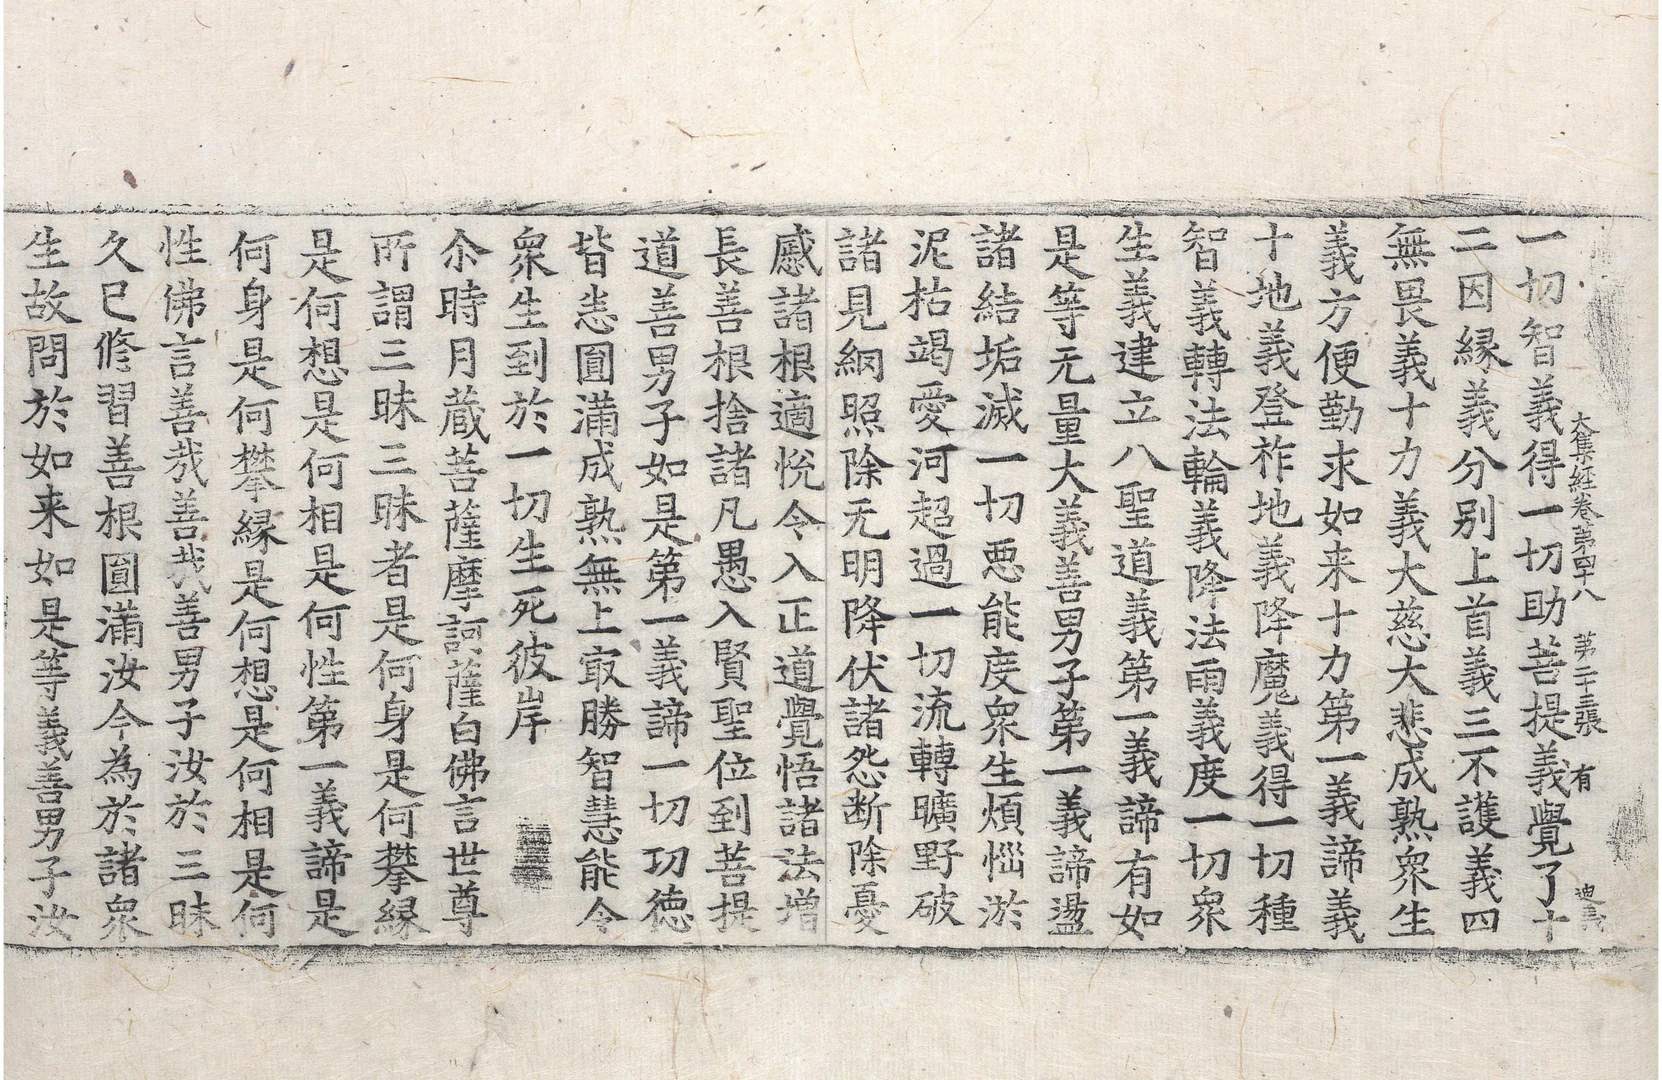 大集經卷第四十八　第二十三張　有　迪義
一切智義得一切助菩提義覺了十
二因縁義分别上首義三不護義四
無畏義十力義大慈大悲成熟衆生
義方便勤求如来十力第一義諦義
十地義登祚地義降魔義得一切種
智義轉法輪義降法雨義度一切衆
生義建立八聖道義第一義諦有如
是等无量大義善男子第一義諦盪
諸結垢滅一切惡能度衆生煩惱淤
泥枯竭愛河超過一切流轉曠野破
諸見網照除无明降伏諸怨断除憂
慼諸根適悅令入正道覺悟諸法增
長善根捨諸凡愚入賢聖位到菩提
道善男子如是第一義諦一切功德
皆悉圓滿成熟無上㝡勝智慧能令
衆生到於一切生死彼岸
尒時月蔵菩薩摩訶薩白佛言世尊
所謂三昧三昧者是何身是何攀縁
是何想是何相是何性第一義諦是
何身是何攀縁是何想是何相是何
性佛言善哉善哉善男子汝於三昧
久已修習善根圓滿汝今為於諸衆
生故問於如来如是等義善男子汝